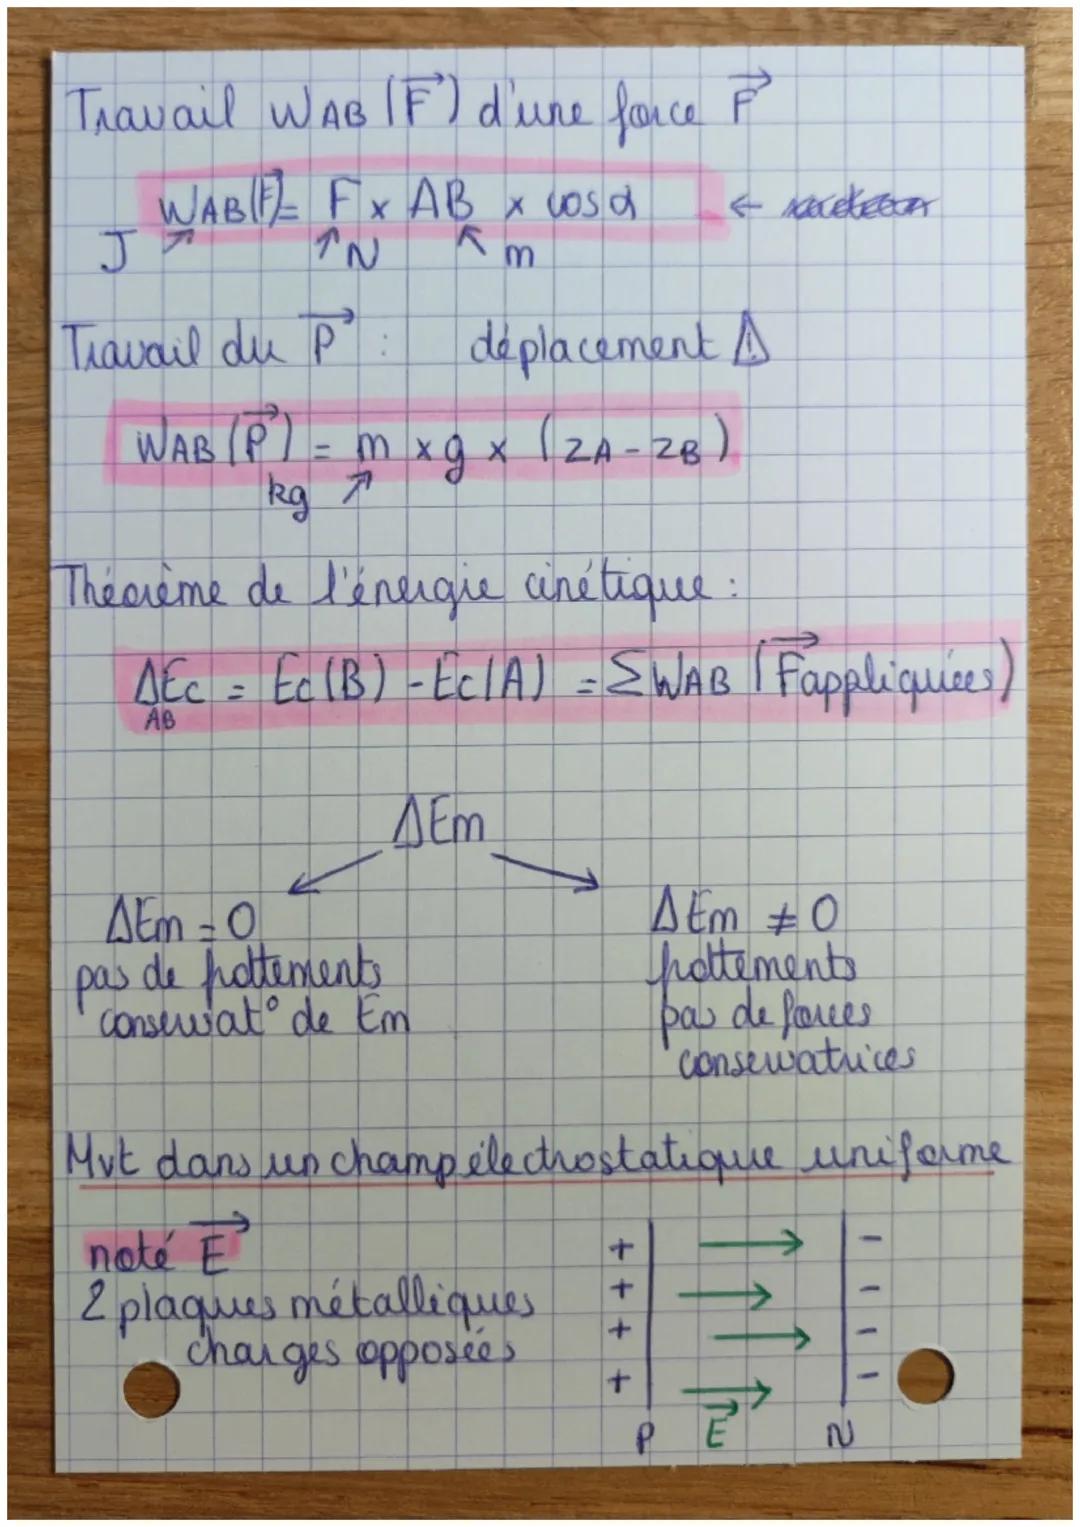 Travail WAB (F) d'une force F
WAB(F) = F x AB x cos α ←
J N m
Travail du P : déplacement ⚠
WAB (P) = m x g x (ZA - ZB)
kg
Théorème de l'énergie cinétique :
ΔEc = Ec(B) - Ec(A) = ΣWAB (Fappliquées)
AB
ΔEm
ΔEm = 0
pas de frottements
conservat° de Em
ΔEm ≠ 0
frottements
pas de forces
conservatrices
Mvt dans un champ électrostatique uniforme
noté E
2 plaques métalliques
charges opposées
+ -
+ -
+ -
+ -
P E N